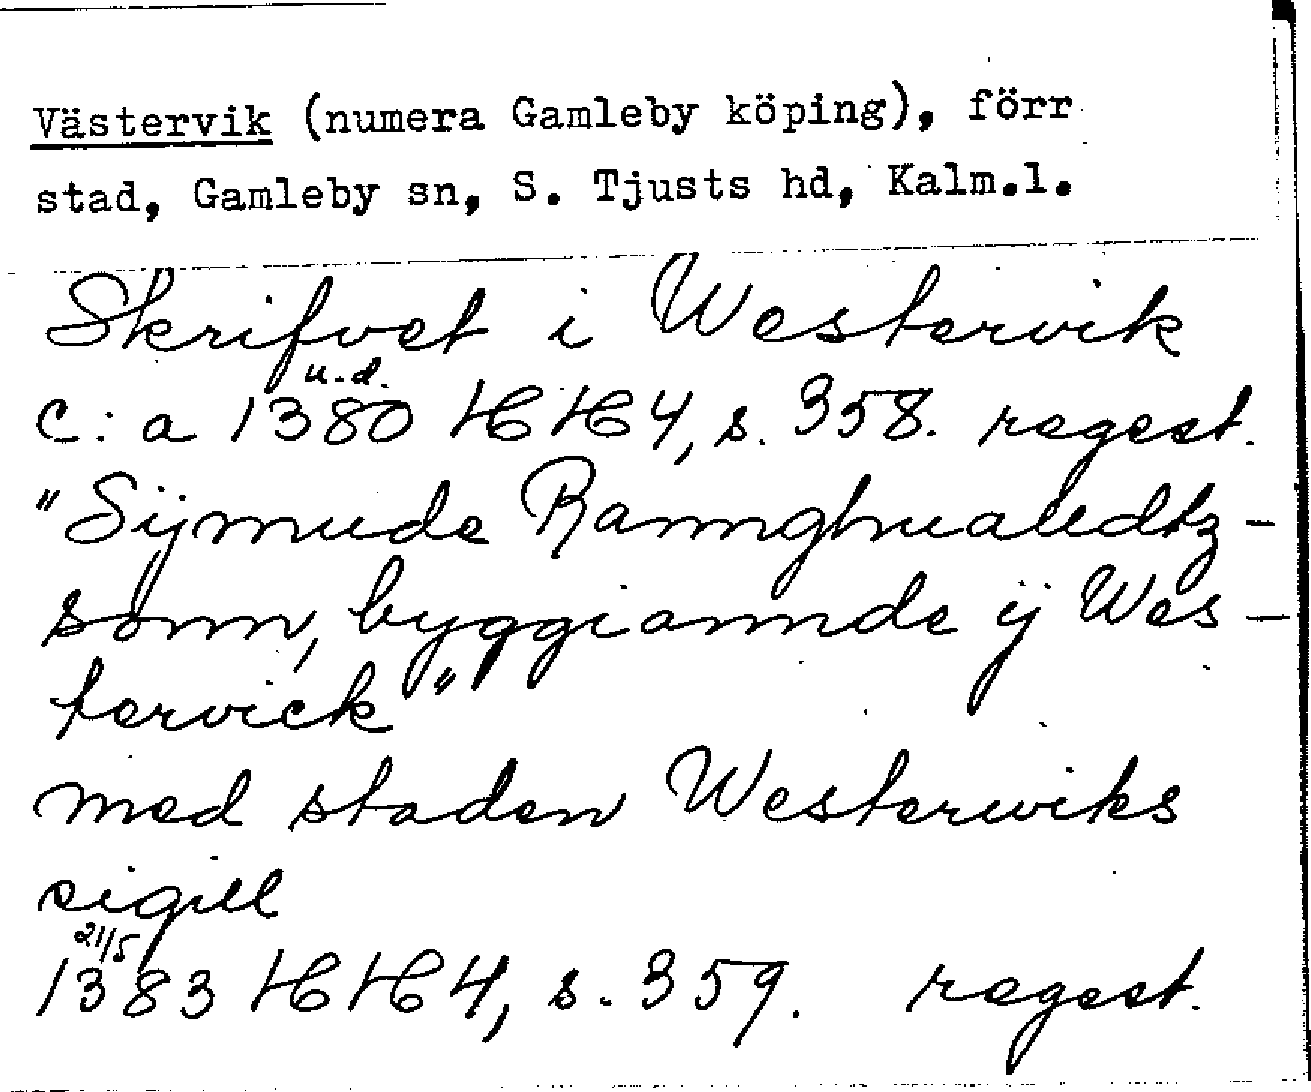 Västervik (numera Gamleby köping), förr
stad, Gamleby sn, S. Tjusts hd, Kalm.l.
Skrifvet i Westervik
u.d.
c:a 1380 HH 4, s. 358. regest.
"Sijmude Rannghualldtz-
sonn, byggiannde ij Wes-
tervick"
med staden Westerwiks
sigill
21/5
1383 HH 4, s. 359. regest.